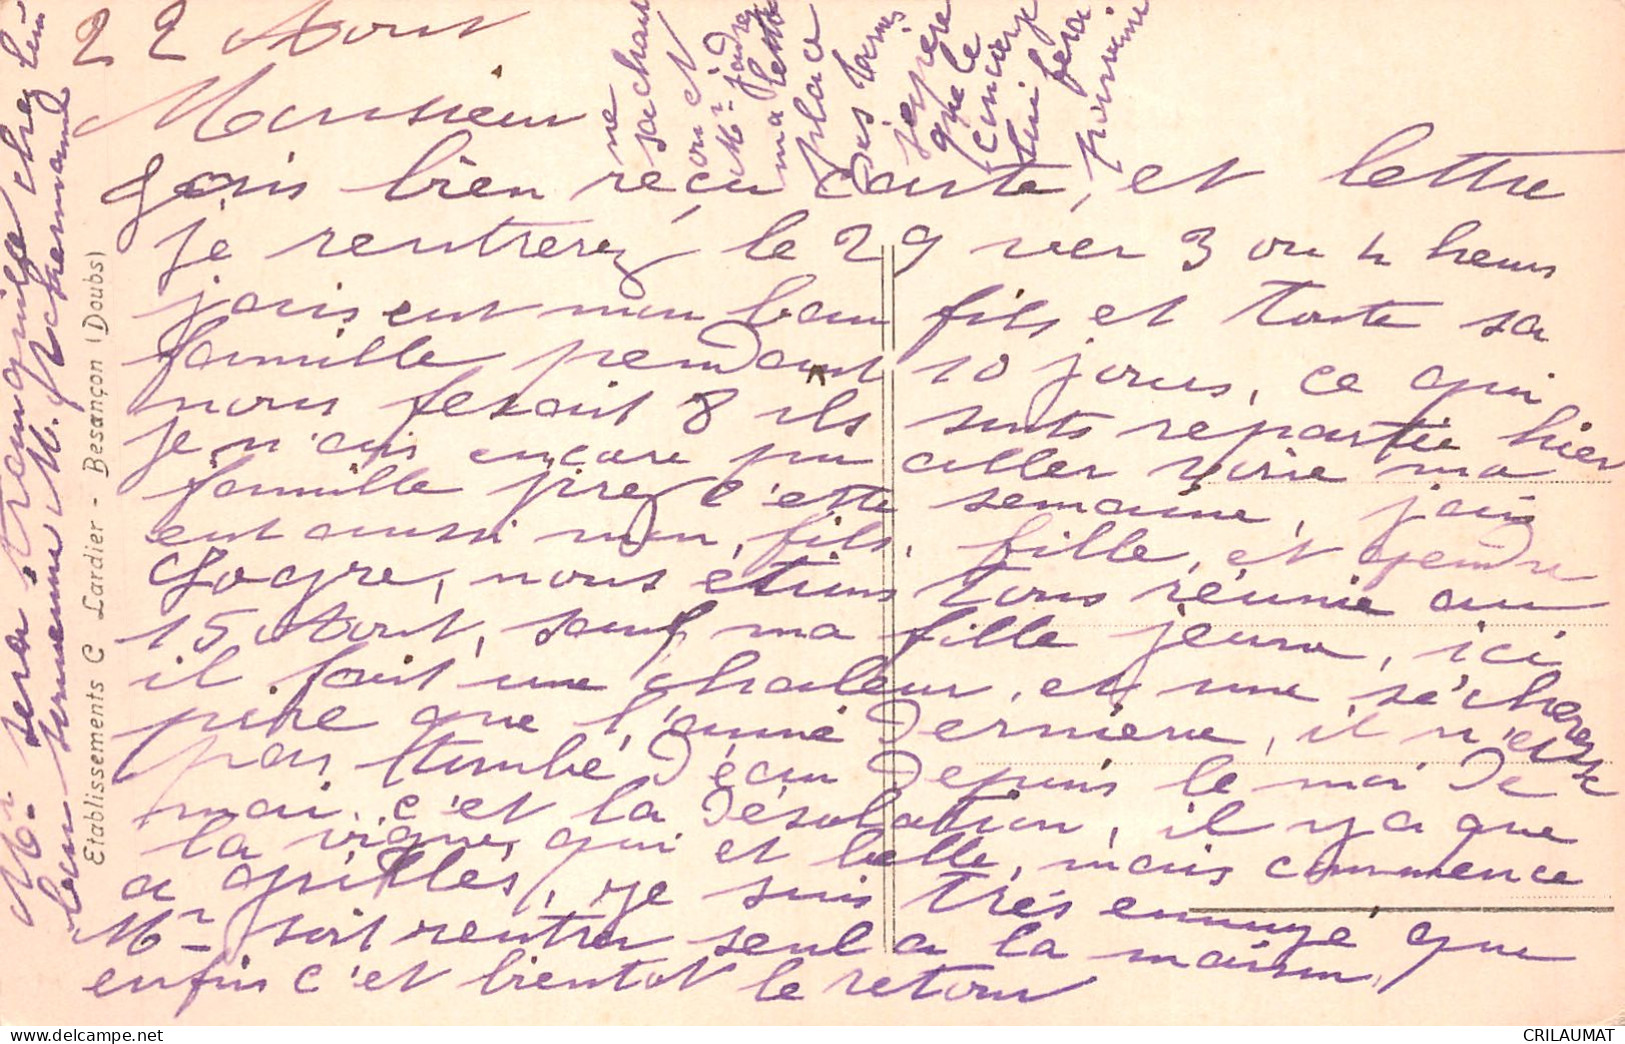 22 Aout
Monsieur
J'ais bien reçu carte, et lettre
je rentrerez le 29 ver 3 ou 4 heurs
jais eut mon beau fils et toute sa
famille pendant 10 jours, ce qui
nous fesait 8 ils sont repartie hier
je n'ais encore pu aller voire ma
famille jirez c'ette semaine, jais
eut aussi mon, fils, fille, et gendre
nous étions tous réunie au
15 Aout, sauf ma fille jeune, ici
il fait une chaleur, et une sécheresse
pire que l'anné dernière, il n'est
pas tombé d'eau depuis le moi de
mai, c'et la désolation, il y a que
la vigne, qui et belle, mais commence
a grillés, je suis très ennuyé que
Mr soit rentrer seul a la maison,
enfin c'et bientot le retour
ne
sachant
ou et
Mr j'adre
ma lettre
place
des Tarnes
j'espère
que le
concierge
lui fera
parvenir
Mr sera tranquille chez lui
bon
Etablissements C Lardier - Besançon (Doubs)
CRILAUMAT